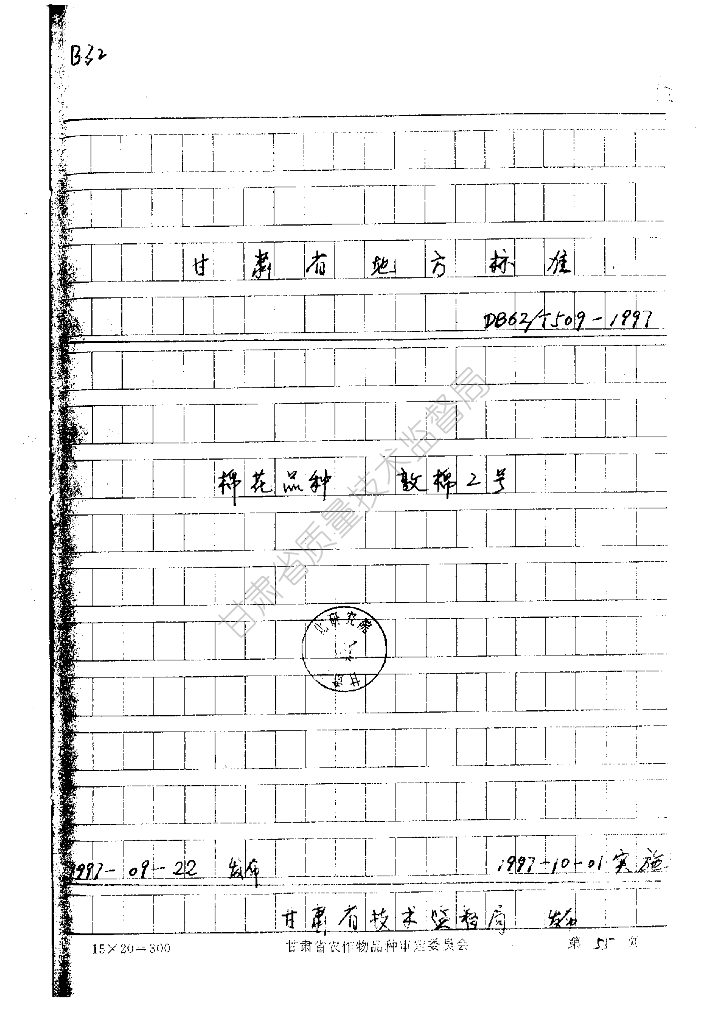 B32
甘肃省地方标准
DB62/T509-1997
棉花品种 敦棉2号
甘肃省质量技术监督局
1997-09-22 发布
1997-10-01 实施
甘肃省技术监督局 发布
15×20=300 甘肃省农作物品种审定委员会 第 页